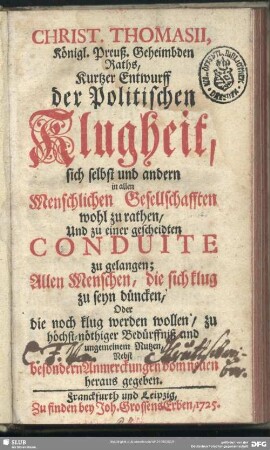 CHRIST. THOMASII,
Königl. Preuß. Geheimbden
Raths,
Kurtzer Entwurff
der Politischen
Klugheit,
sich selbst und andern
in allen
Menschlichen Gesellschafften
wohl zu rathen/
Und zu einer gescheidten
CONDUITE
zu gelangen;
Allen Menschen, die sich klug
zu seyn düncken/
Oder
die noch klug werden wollen/ zu
höchst-nöthiger Bedürffniß und
ungemeinem Nutzen,
Nebst
besondern Anmerckungen vom neuen
heraus gegeben.
Franckfurth und Leipzig,
Zu finden bey Joh. Grossens Erben, 1725.
SLUB
DFG